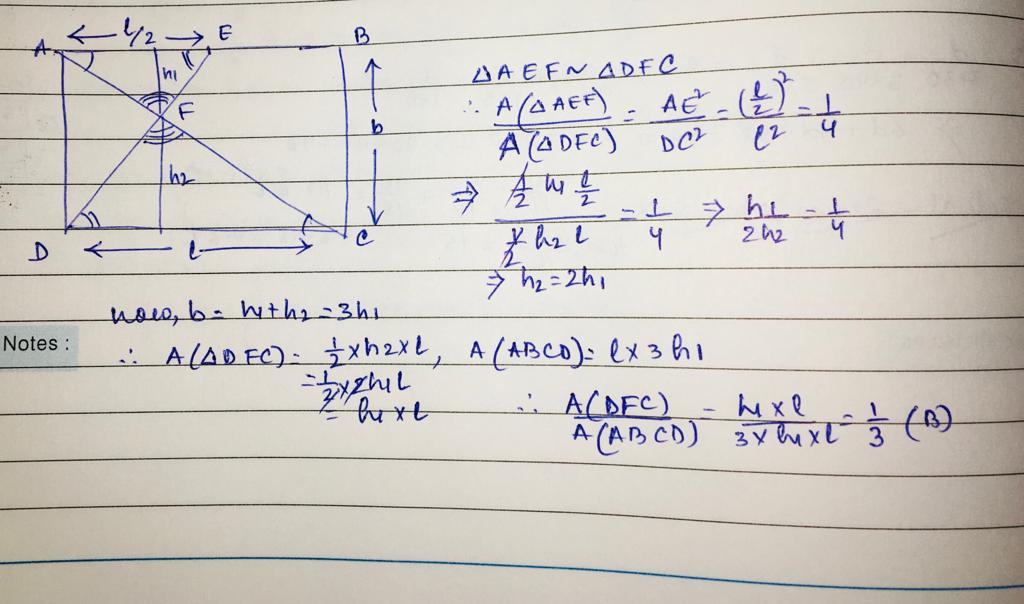 A ← l/2 → E B
h1
F
b
h2
D ← l → C
ΔAEF ~ ΔDFC
∴ A(ΔAEF)/A(ΔDFC) = AE²/DC² = (l/2)²/l² = 1/4
⇒ (1/2 h1 l/2)/(1/2 h2 l) = 1/4 ⇒ h1/2h2 = 1/4
⇒ h2 = 2h1
now, b = h1+h2 = 3h1
Notes :
∴ A(ΔDFC) = 1/2 × h2 × l, A(ABCD) = l × 3h1
= 1/2 × 2h1 l
= h1 × l
∴ A(DFC)/A(ABCD) = h1 × l/3 × h1 × l = 1/3 (B)